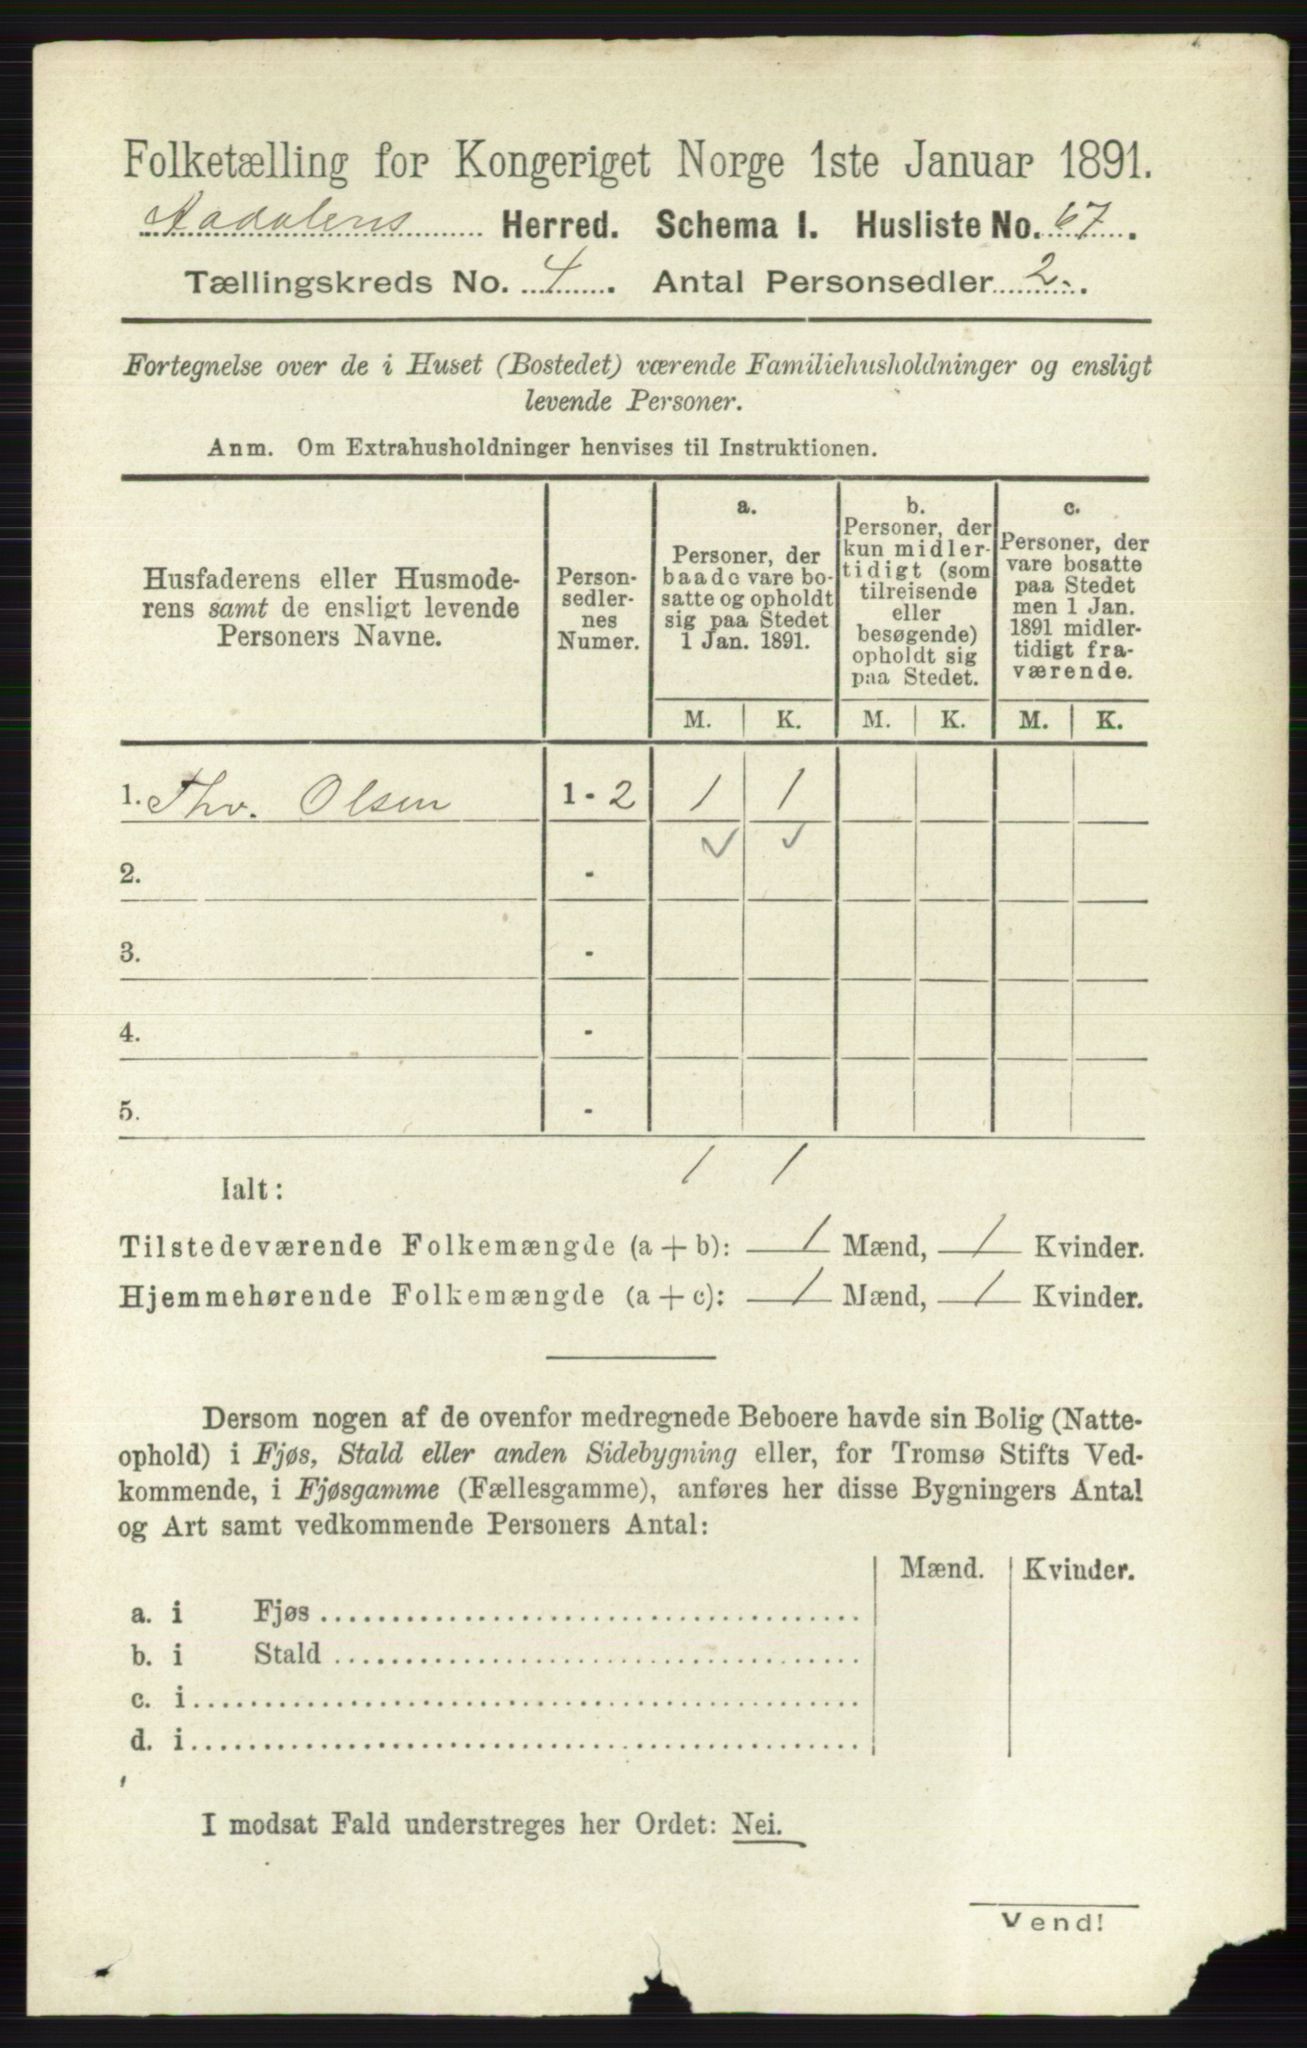 Folketælling for Kongeriget Norge 1ste Januar 1891.
Aadalens Herred. Schema I. Husliste No. 67.
Tællingskreds No. 4. Antal Personsedler 2.
Fortegnelse over de i Huset (Bostedet) værende Familiehusholdninger og ensligt
levende Personer.
Anm. Om Extrahusholdninger henvises til Instruktionen.
Husfaderens eller Husmode-
rens samt de ensligt levende
Personers Navne.
Person-
sedler-
nes
Numer.
a.
Personer, der
baade vare bo-
satte og opholdt
sig paa Stedet
1 Jan. 1891.
b.
Personer, der
kun midler-
tidigt (som
tilreisende
eller
besøgende)
opholdt sig
paa Stedet.
c.
Personer, der
vare bosatte
paa Stedet
men 1 Jan.
1891 midler-
tidigt fra-
værende.
M. K. M. K. M. K.
1. Thv. Olsen 1 - 2 1 1
2. -
3. -
4. -
5. -
Ialt: 1 1
Tilstedeværende Folkemængde (a + b): 1 Mænd, 1 Kvinder.
Hjemmehørende Folkemængde (a + c): 1 Mænd, 1 Kvinder.
Dersom nogen af de ovenfor medregnede Beboere havde sin Bolig (Natte-
ophold) i Fjøs, Stald eller anden Sidebygning eller, for Tromsø Stifts Ved-
kommende, i Fjøsgamme (Fællesgamme), anføres her disse Bygningers Antal
og Art samt vedkommende Personers Antal:
Mænd. Kvinder.
a. i Fjøs
b. i Stald
c. i
d. i
I modsat Fald understreges her Ordet: Nei.
Vend!